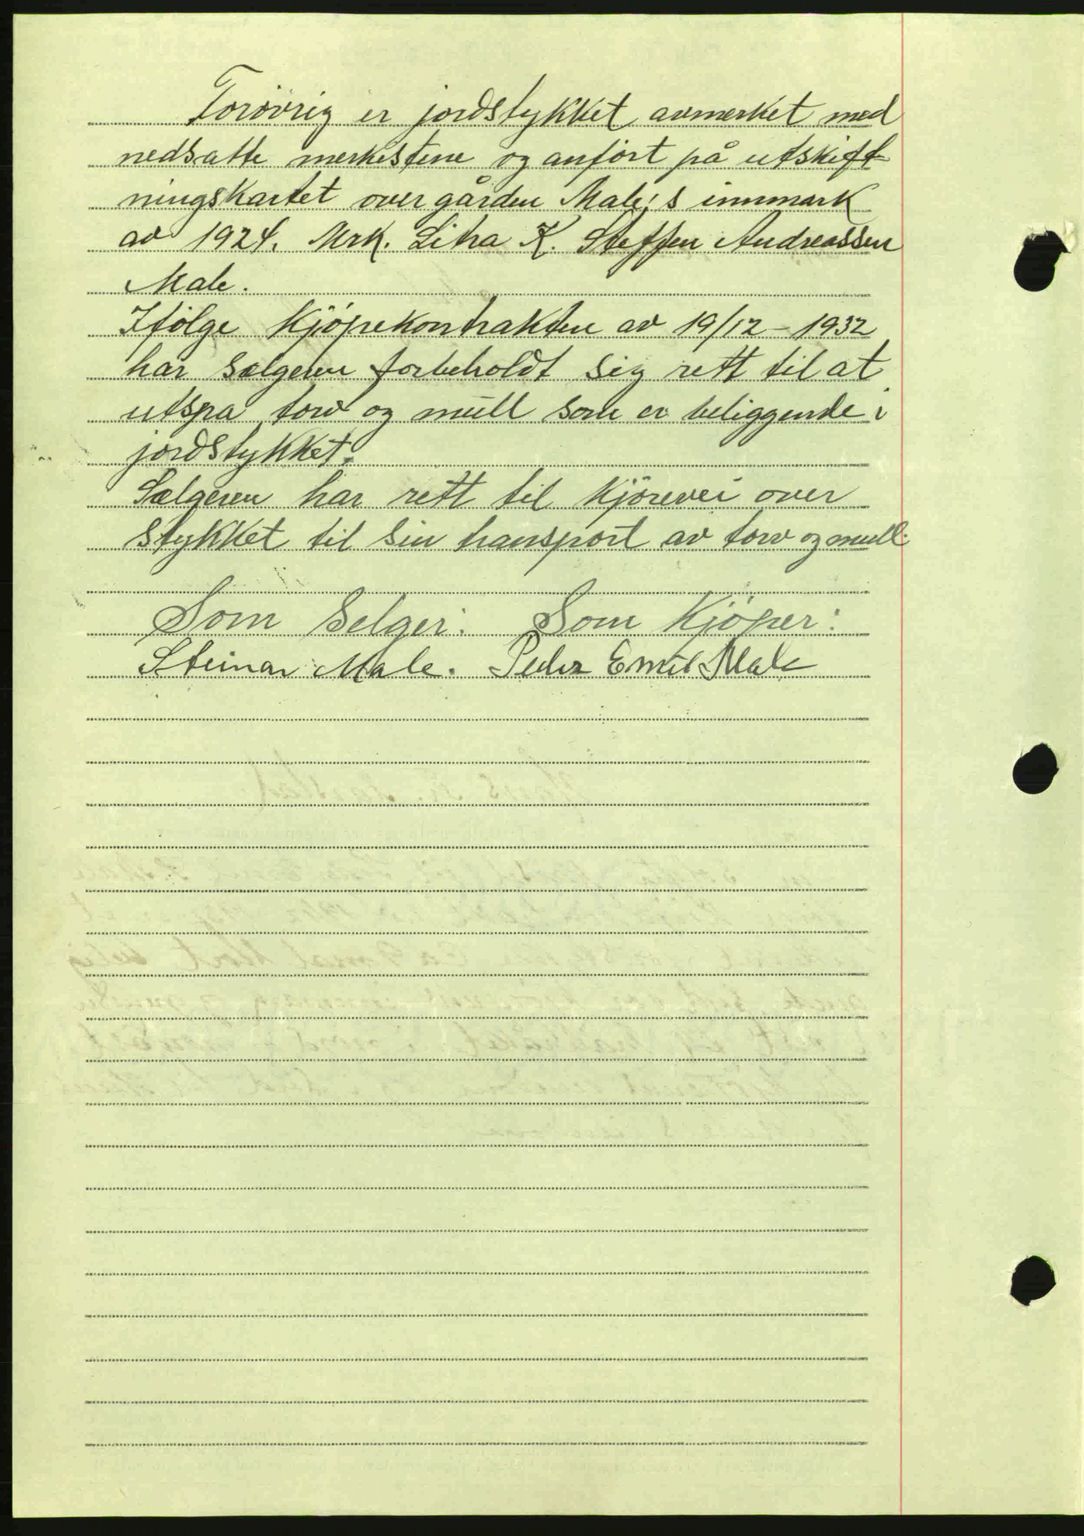 Forøvrig er jordstykket avmerket med
nedsatte merkestene og anført på utskift-
ningskartet over gården Male;s innmark
av 1924. Mrk. Litra K. Steffen Andreassen
Male.
Ifölge Kjöpekontrakten av 19/12-1932
har sælgeren forbeholdt sig rett til at
utspa torv og mull som er beliggende i
jordstykket.
Sælgeren har rett til Kjörevei over
stykket til sin transport av torv og mull.
Som Selger: Som Kjöper:
Steinar Male. Peder Emil Male